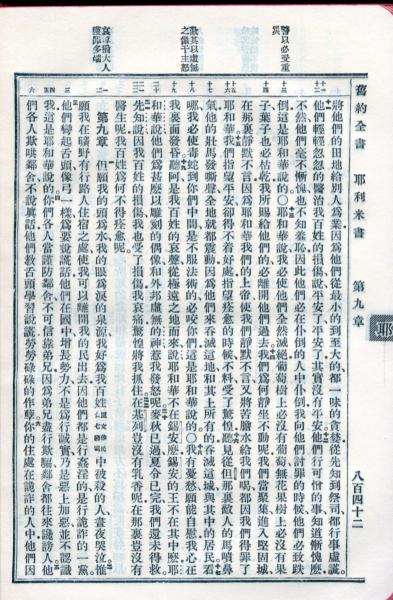 舊約全書 耶利米書 第九章 八百四十二
耶
將他們的田地給別人為業因為他們從最小的到至大的都一味的貪婪從先知到祭司都行事虛謊
他們輕輕忽忽的醫治我百姓的損傷說平安了平安了其實沒有平安他們行可憎的事知道慚愧麼
不然他們毫不慚愧也不知羞恥因此他們必在仆倒的人中仆倒我向他們討罪的時候他們必致跌
倒這是耶和華說的○耶和華說我必使他們全然滅絕葡萄樹上必沒有葡萄無花果樹上必沒有果
子葉子也必枯乾我所賜給他們的必離開他們過去我們為何靜坐不動呢我們當聚集進入堅固城
在那裏靜默不言因為耶和華我們的上帝使我們靜默不言又將苦膽水給我們喝都因我們得罪了
耶和華我們指望平安卻得不着好處指望痊愈的時候不料受了驚惶聽見從但那裏敵人的馬噴鼻
氣他的壯馬發嘶聲全地就都震動因為他們來吞滅這地和其上所有的吞滅這城與其中的居民看
哪我必使毒蛇到你們中間是不服法術的必咬你們這是耶和華說的○我有憂愁願能自慰我心在
我裏面發昏聽阿是我百姓的哀聲從極遠之地而來說耶和華不在錫安麼錫安的王不在其中麼耶
和華說他們為甚麼以雕刻的偶像和外邦虛無的神惹我發怒呢麥秋已過夏令已完我們還未得救
先知說因我百姓的損傷我也受了損傷我哀痛驚惶將我抓住在基列豈沒有乳香呢在那裏豈沒有
醫生呢我百姓為何不得痊愈呢
第九章 但願我的頭為水我的眼為淚的泉源我好為我百姓中被殺的人晝夜哭泣惟
願我在曠野有行路人住宿之處使我可以離開我的民出去因他們都是行姦淫的是行詭詐的一黨
他們彎起舌頭像弓一樣為要說謊話他們在國中增長勢力不是為行誠實乃是惡上加惡並不認識
我這是耶和華說的你們各人當謹防鄰舍不可信靠弟兄因為弟兄盡行欺騙鄰舍都往來讒謗人他
們各人欺哄鄰舍不說真話他們教舌頭學習說謊勞勞碌碌的作孽你的住處在詭詐的人中他們因